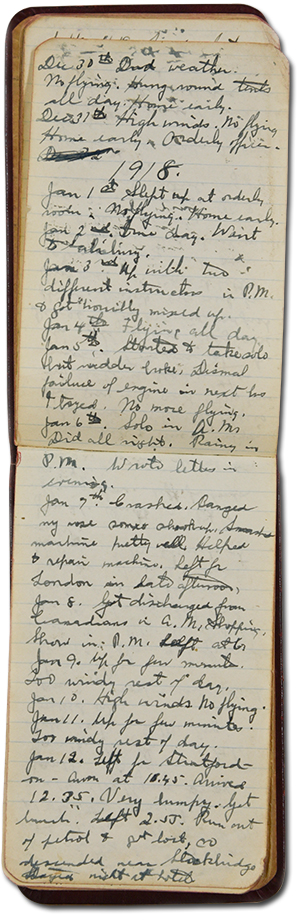 Dec 30th Dud weather.
No flying. Hung round tents
all day. Home early.
Dec 31st High winds. No flying
Home early. Orderly officer.
1918.
Jan 1st Slept up at orderly
room. No flying. Home early.
Jan 2nd Day. Went
to Salisbury.
Jan 3rd Up with two
different instructors in P.M.
& got horribly mixed up.
Jan 4th Flying all day.
Jan 5th. Started to take solo
but rudder broke. Dismal
failure of engine in next bus
I taxed. No more flying.
Jan 6th. Solo in A.M.
Did all right. Rainy in
P.M. Wrote letter in
evening.
Jan 7th Crashed. Banged
my nose some shook up. Smashed
machine pretty well. Helped
to repair machine. Left for
London in late afternoon,
Jan 8. Got discharged from
Canadians in A.M., Shopping.
Show in P.M. Left at 6
Jan 9. Up for few minutes.
Too windy rest of day.
Jan 10. High winds. No flying.
Jan 11. Up for few minutes.
Too windy rest of day.
Jan 12. Left for Stratford-
on-Avon at 10.45. Arrive
12.35. Very bumpy. Got
lunch. Left 2.55. Run out
of petrol & got lost, so
descended near Stockbridge
Stayed night at hotel